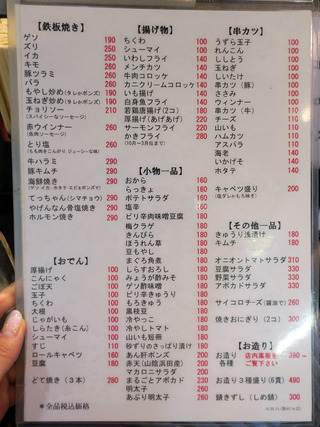 【鉄板焼き】
ゲソ 190
ズリ 250
イカ 260
キモ 260
豚ツラミ 260
バラ 260
もやし炒め(タレかポンズ) 190
玉ねぎ炒め(タレかポンズ) 190
チョリソー 210
(スパイシーなソーセージ)
赤ウインナー 260
(魚肉ソーセージ)
とり塩 260
牛ハラミ 290
豚キムチ 290
海鮮焼き 290
てっちゃん(シマチョウ) 290
やげんなん骨塩焼き 290
ホルモン焼き 290
【おでん】
厚揚げ 100
こんにゃく 100
ごぼ天 100
玉子 100
ちくわ 100
大根 100
じゃがいも 100
しらたき(糸こん) 100
シューマイ 100
すじ 110
ロールキャベツ 160
豆腐 180
どて焼き(3本) 280
*全品税込価格
【揚げ物】
ちくわ 100
シューマイ 100
いわしフライ 140
メンチカツ 140
牛肉コロッケ 140
カニクリームコロッケ 140
いも揚げ 140
白身魚フライ 140
若鶏唐揚げ(2コ) 180
厚揚げ(あげあげ) 220
サーモンフライ 220
かきフライ 280
(10月〜3月位まで)
【小物一品】
おから 160
らっきょ 160
ポテトサラダ 160
塩辛 160
ピリ辛肉味噌豆腐 180
梅クラゲ 180
きんぴら 180
ほうれん草 180
豆もやし 180
まぐろ角煮 180
しらすおろし 180
みょうが酢みそ 180
ゲソ酢味噌 180
ピリ辛きゅうり 180
もろきゅう 180
黒枝豆 180
冷やっこ 180
冷やしトマト 180
山いも短冊 180
砂ずりのさっぱり漬け 180
あん肝ポンズ 200
赤天(山陰浜田産) 200
マカロニサラダ 200
まるごとアボカド 230
明太子 260
あぶり明太子 260
【串カツ】
うずら玉子 100
れんこん 100
ししとう 100
玉ねぎ 100
しいたけ 100
串カツ(豚) 100
ささみ 100
ウィンナー 100
串カツ(牛) 110
チーズ 110
山いも 110
ハムカツ 110
アスパラ 110
海老 140
いかげそ 140
ホタテ 140
キャベツ盛り 200
(塩ダレかもろ味そ)
【その他一品】
きゅうり浅漬け 180
キムチ 180
オニオントマトサラダ 310
豆腐サラダ 330
野菜サラダ 330
アボカドサラダ 330
サイコロチーズ(醤油で) 260
焼きおにぎり(2コ) 300
【お造り】
お造り各種 店内黒板をご覧下さい 390〜
お造り3種盛り(6貫) 490
鯖きずし(しめ鯖) 300